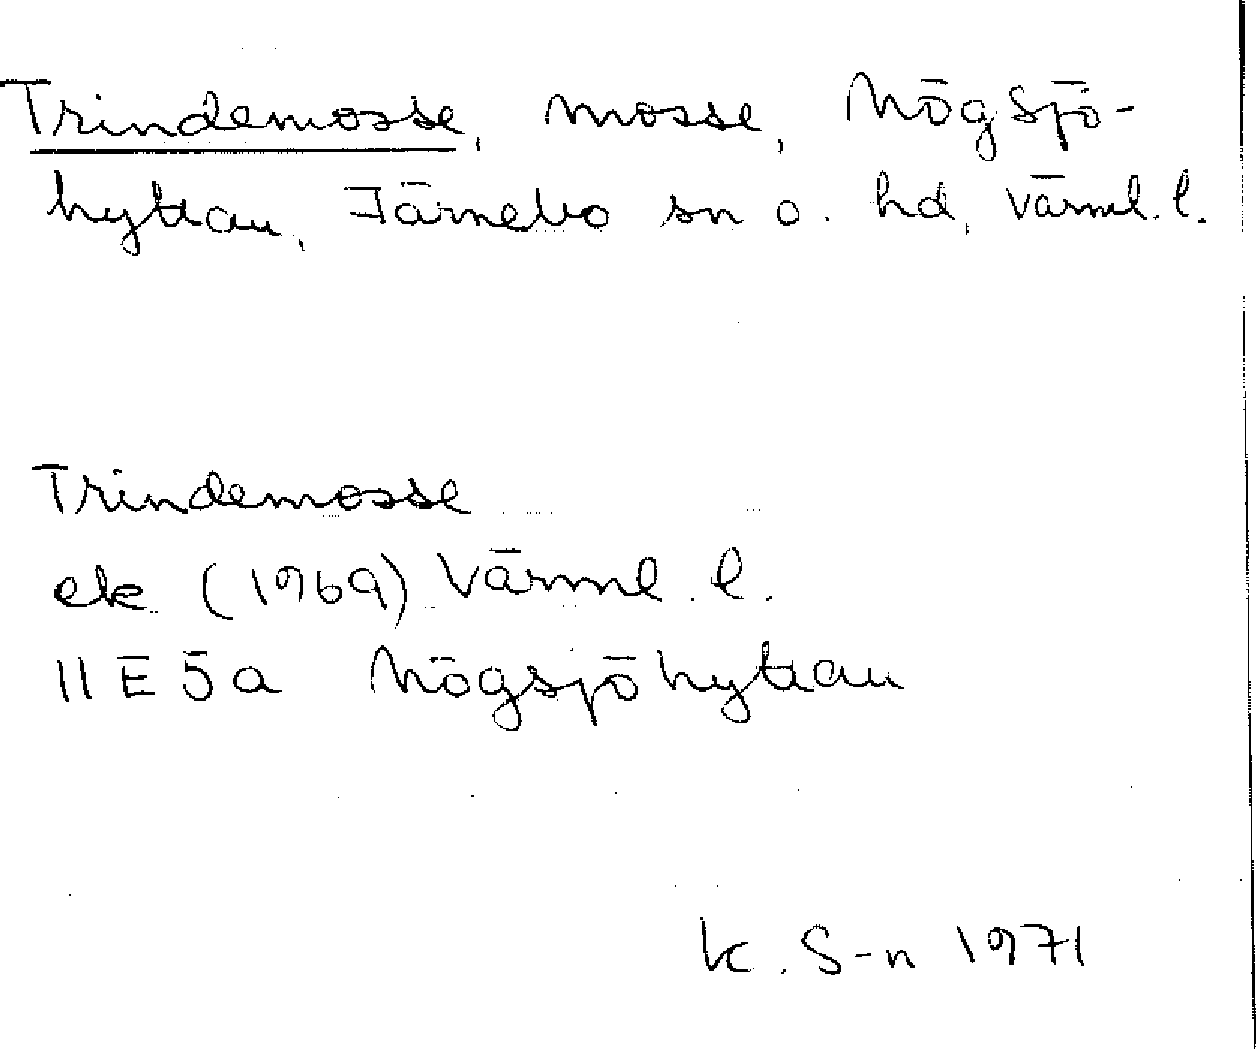 Trindemosse, mosse, Högsjö-
hyttan, Färnebo sn o. hd, Värml. l.
Trindemosse
ek (1969) Värml. l.
11E 5a Högsjöhyttan
K. S-n 1971